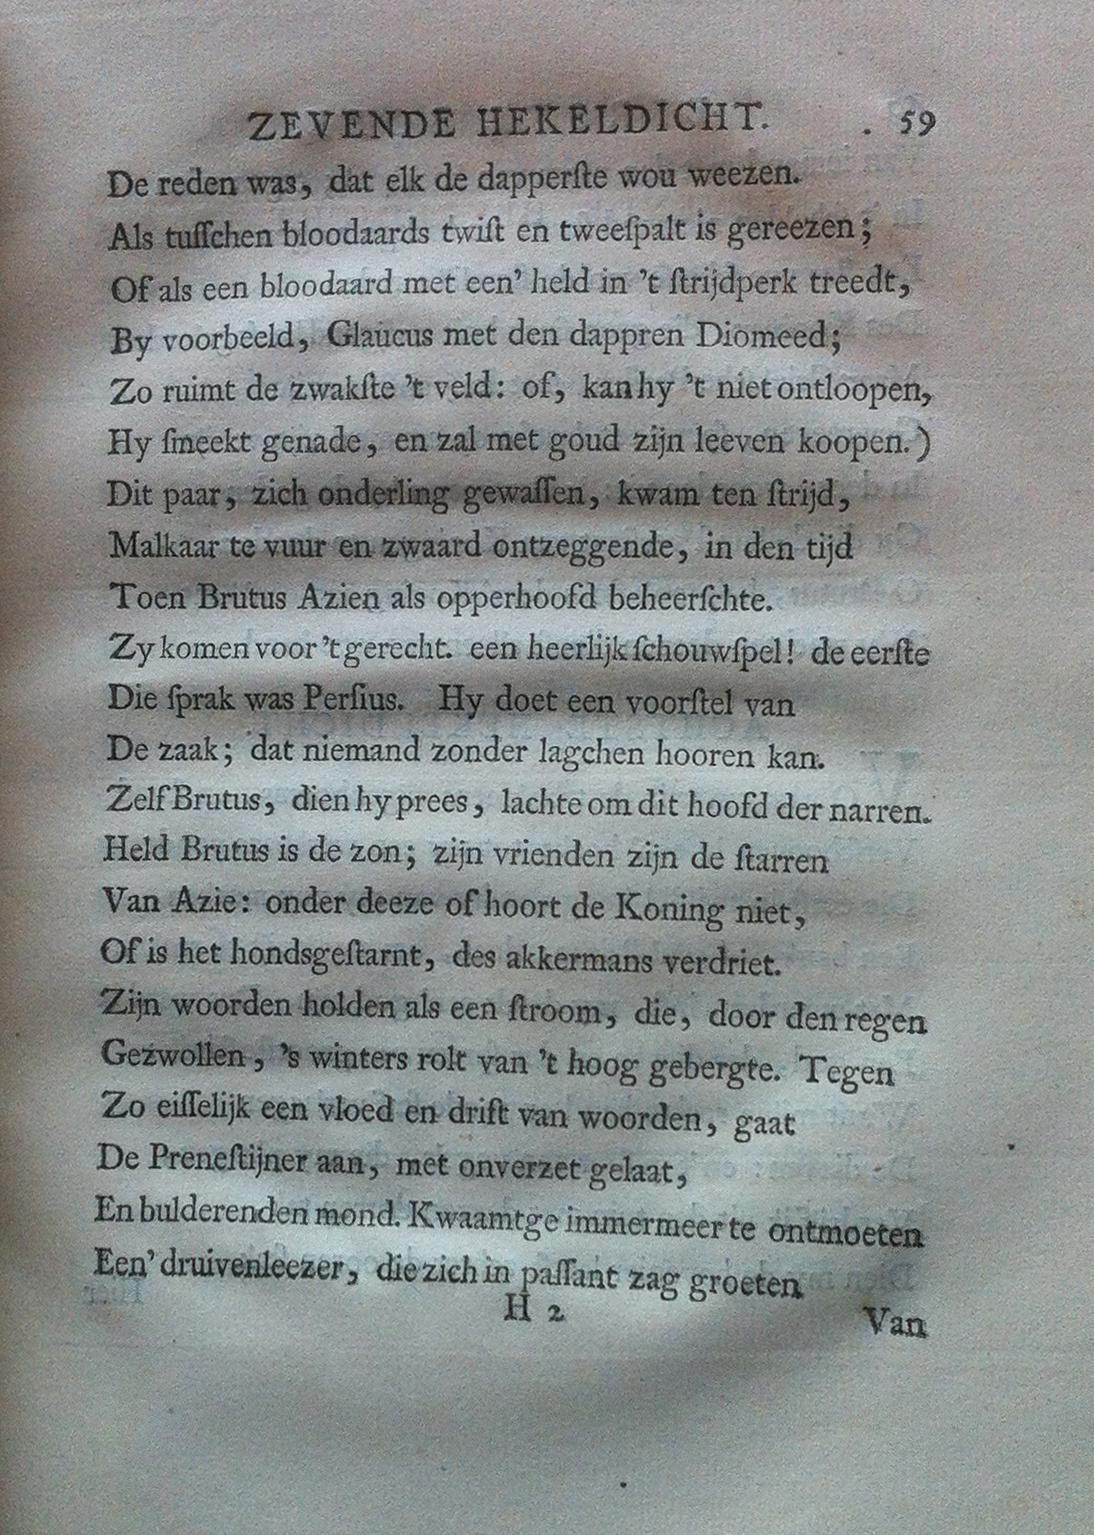 ZEVENDE HEKELDICHT. 59
De reden was, dat elk de dapperſte wou weezen.
Als tuſſchen bloodaards twiſt en tweeſpalt is gereezen;
Of als een bloodaard met een' held in 't ſtrijdperk treedt,
By voorbeeld, Glaucus met den dappren Diomeed;
Zo ruimt de zwakſte 't veld: of, kan hy 't niet ontloopen,
Hy ſmeekt genade, en zal met goud zijn leeven koopen.)
Dit paar, zich onderling gewaſſen, kwam ten ſtrijd,
Malkaar te vuur en zwaard ontzeggende, in den tijd
Toen Brutus Azien als opperhoofd beheerſchte.
Zy komen voor 't gerecht. een heerlijk ſchouwſpel! de eerſte
Die ſprak was Perſius. Hy doet een voorſtel van
De zaak; dat niemand zonder lagchen hooren kan.
Zelf Brutus, dien hy prees, lachte om dit hoofd der narren.
Held Brutus is de zon; zijn vrienden zijn de ſtarren
Van Azie: onder deeze of hoort de Koning niet,
Of is het hondsgeſtarnt, des akkermans verdriet.
Zijn woorden holden als een ſtroom, die, door den regen
Gezwollen, 's winters rolt van 't hoog gebergte. Tegen
Zo eiſſelijk een vloed en drift van woorden, gaat
De Preneſtijner aan, met onverzet gelaat,
En bulderenden mond. Kwaamtge immermeer te ontmoeten
Een' druivenleezer, die zich in paſſant zag groeten
H 2 Van